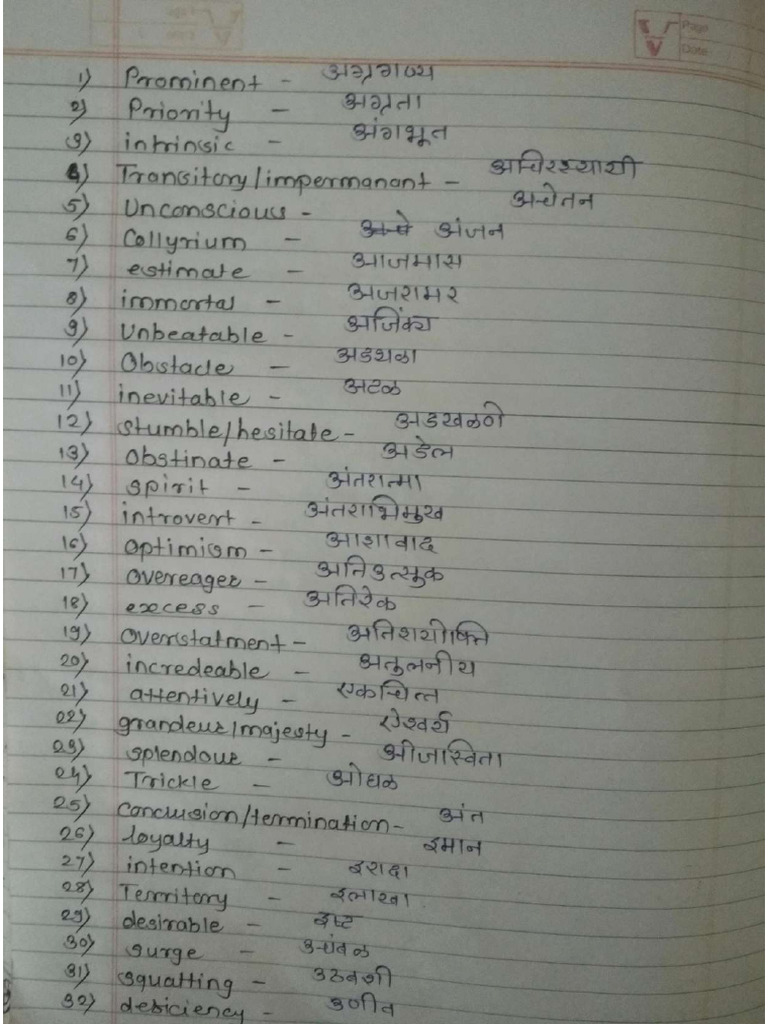 Page
Date
1) Prominent - अग्रगण्य
2) Priority - अग्रता
3) intrinsic - अंगभूत
4) Transitory/impermanant - अचिरस्थायी
5) Unconscious - अचेतन
6) Collyrium - अंजन
7) estimate - आजमास
8) immortal - अजरामर
9) Unbeatable - अजिंक्य
10) Obstacle - अडथळा
11) inevitable - अटळ
12) stumble/hesitate - अडखळणे
13) Obstinate - अडेल
14) spirit - अंतरात्मा
15) introvert - अंतराभिमुख
16) optimism - आशावाद
17) overeager - अतिउत्सुक
18) excess - अतिरेक
19) overstatment - अतिशयोक्ति
20) incredeable - अतुलनीय
21) attentively - एकचित्त
22) grandeur/majesty - ऐश्वर्य
23) splendour - ओजस्विता
24) Trickle - ओघळ
25) Conclusion/termination - अंत
26) loyalty - इमान
27) intention - इरादा
28) Territory - इलाखा
29) desirable - इष्ट
30) surge - उचंबळ
31) squatting - उठबशी
32) deficiency - उणीव